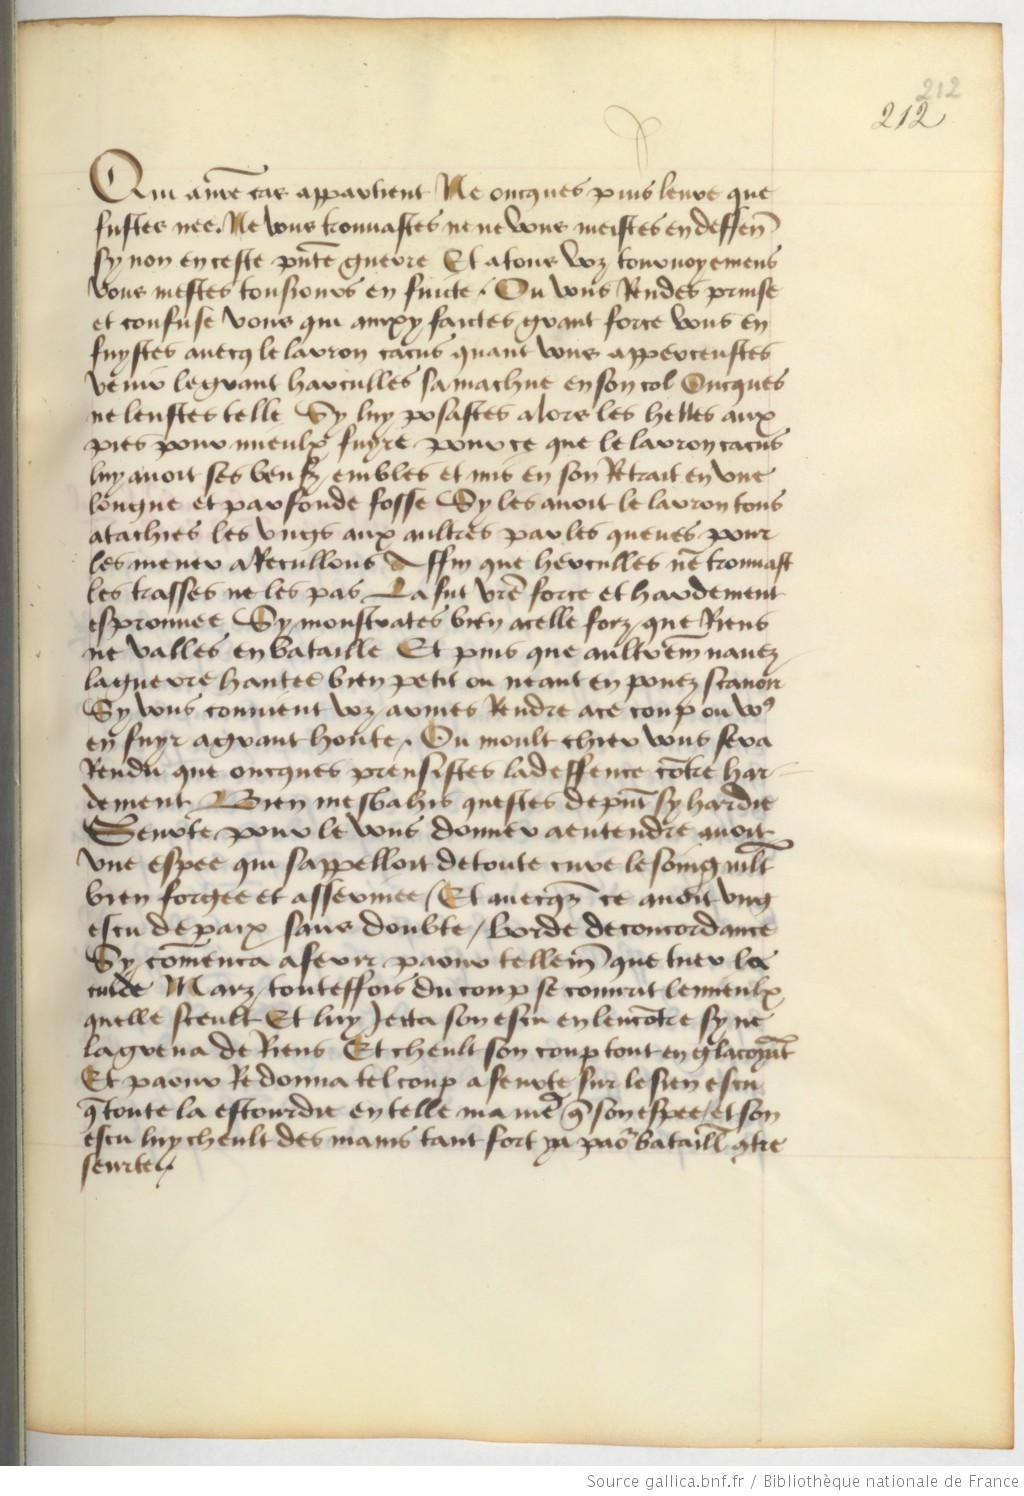 212
212
Qui a vr̃e cas appartient Ne oncques puis leure que
fustes nee. Ne vous trouuastes ne ne vous meistes en deffen̄
sy non en ceste pn̄te guerre Et a tous voz tournoyemens
vous mestes tousiours en fuicte. Ou vous Rendes prinse
et confuse vous qui ainxy faictes grant force vous en
fuystes auecq le larron cacus quant vous apperceustes
venir le grant harculles sa machue en son col Oncques
ne leustes telle Sy luy posastes alors les helles aux
pies pour mieulx fuyre pour ce que le larron cacus
luy auoit ses beufz embles et mis en son Retrait en vne
longue et parfonde fosse Sy les auoit le larron tous
atachies les vngs aux aultres par les queues pour
les mener a Recullons Affin que herculles ne trouuast
les trasses ne les pas La fut vr̃e force et hardement
esprouuee Sy monstrates bien a celle forz que Riens
ne valles en bataille Et puis que aultrem̄ nauez
la guerre hantee bien petit ou neant en pouez scauoir
Sy vous conuient voz armes Rendre a ce coup ou vo9
en fuyr a grant honte. Ou moult chier vous sera
Rendu que oncques prensistes la deffence cōtre har-
dement Bien mesbahis questes de pn̄t sy hardie
Seurte pour le vous donner a entendre auoit
vne espee qui sappelloit de toute cure le soing mlt̄
bien forgee et asseruiee / Et auecqz ce auoit vng
escu de paix sans doubte / borde de concordance
Sy com̄enca a ferir paour tellem̄ que tuer la
cuide Marz touteffois du coup se couurit le mieulx
quelle sceult Et luy Jecta son escu en lencōtre sy ne
la greua de Riens Et cheult son coup tout en glacoyāt
Et paour Redonna tel coup a seurte sur le sien escu
q̄ toute la estourdie en telle manie q̄ son espee / et son
escu luy cheult des mains tant fort ya paor bataill 9tre
seurte.
Source gallica.bnf.fr / Bibliothèque nationale de France